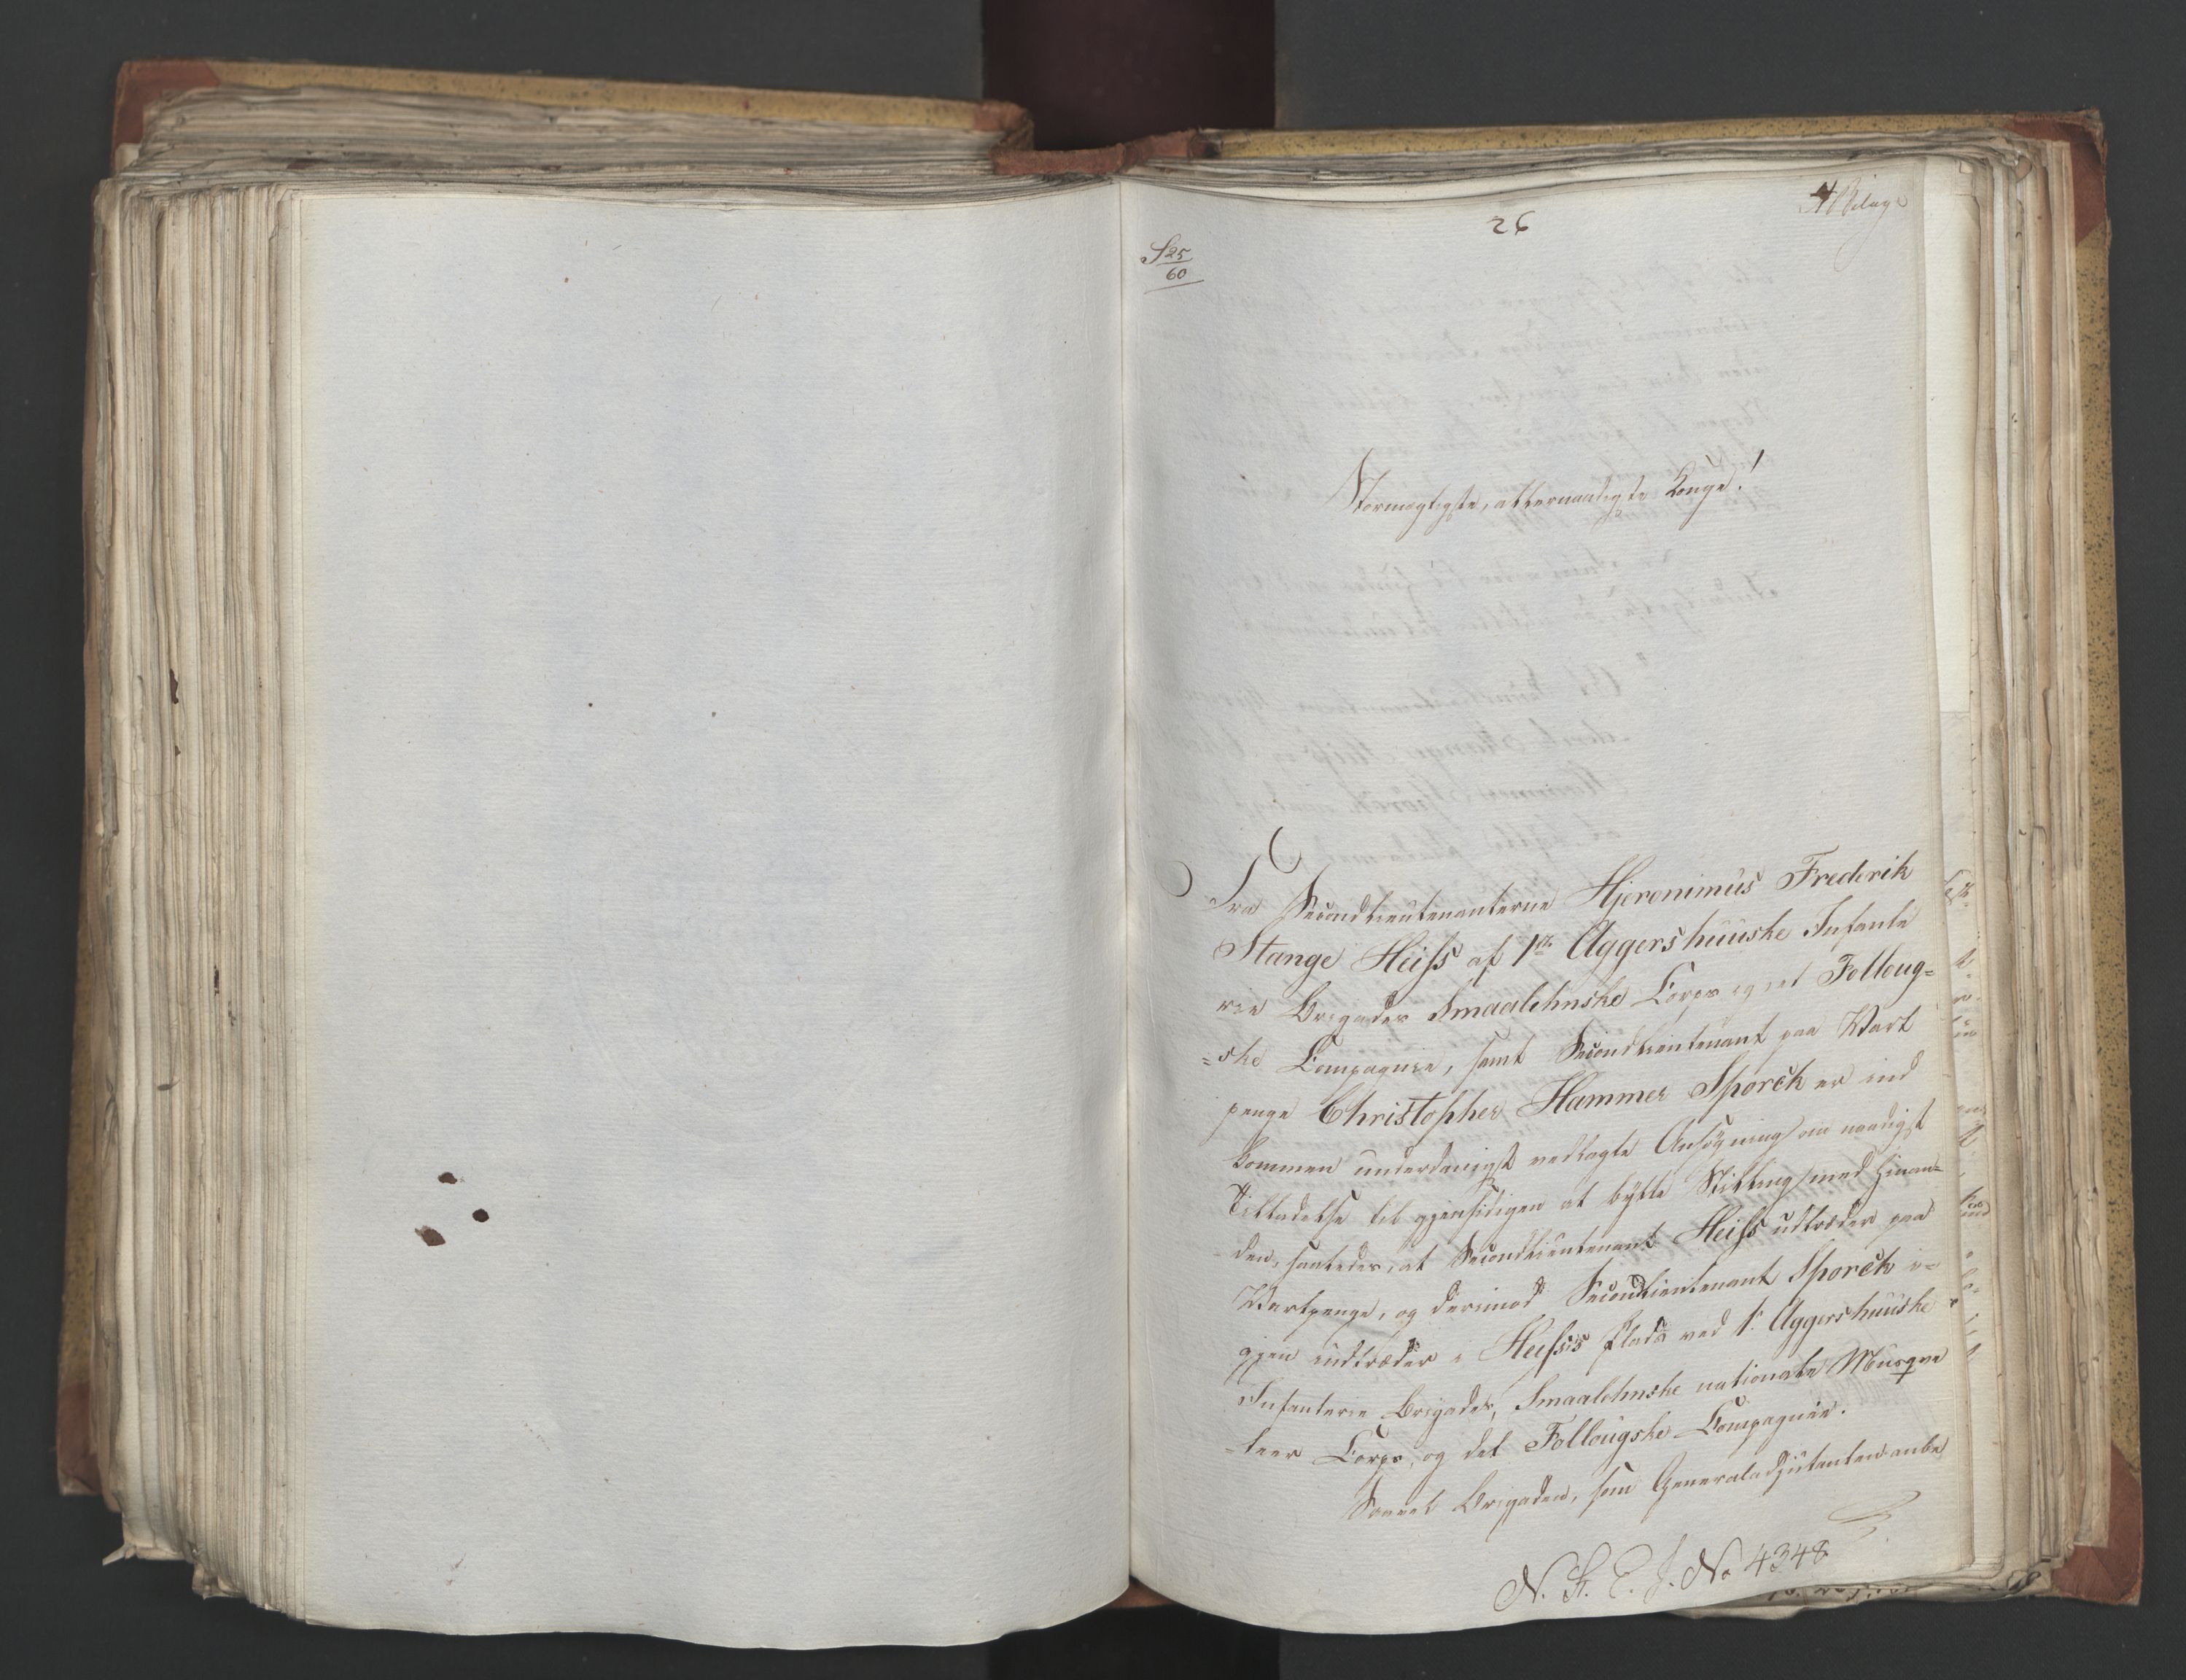 26
4 Bilage
S 25
60
Stormægtigste, allernaadigste Konge!
Fra Secondlieutenanterne Hjeronimus Frederik
Stange Heiss af 1ste Aggershuuske Infante
rie Brigades Smaalehnske Corps og det Folloug=
=ske Compagnie, samt Secondlieutenant paa Vart
penge Christopher Hammer Sporck er ind
kommen underdanigst vedlagte Ansøgning om naadigst
Tilladelse til gjensidigen at bytte Stilling med hinan=
den, saaledes, at Secondlieutenant Heiss udtræder paa
Vartpenge, og derimod Secondlieutenant Sporck i=
gjen indtræder i Heiss's Plads ved 1. Aggershuuske
Infanterie Brigades, Smaalehnske nationale Musque
=teer Corps, og det Follougske Compagnie.
Saavel Brigaden, som Generaladjutanten anbe
N. St. E. J. No 4348